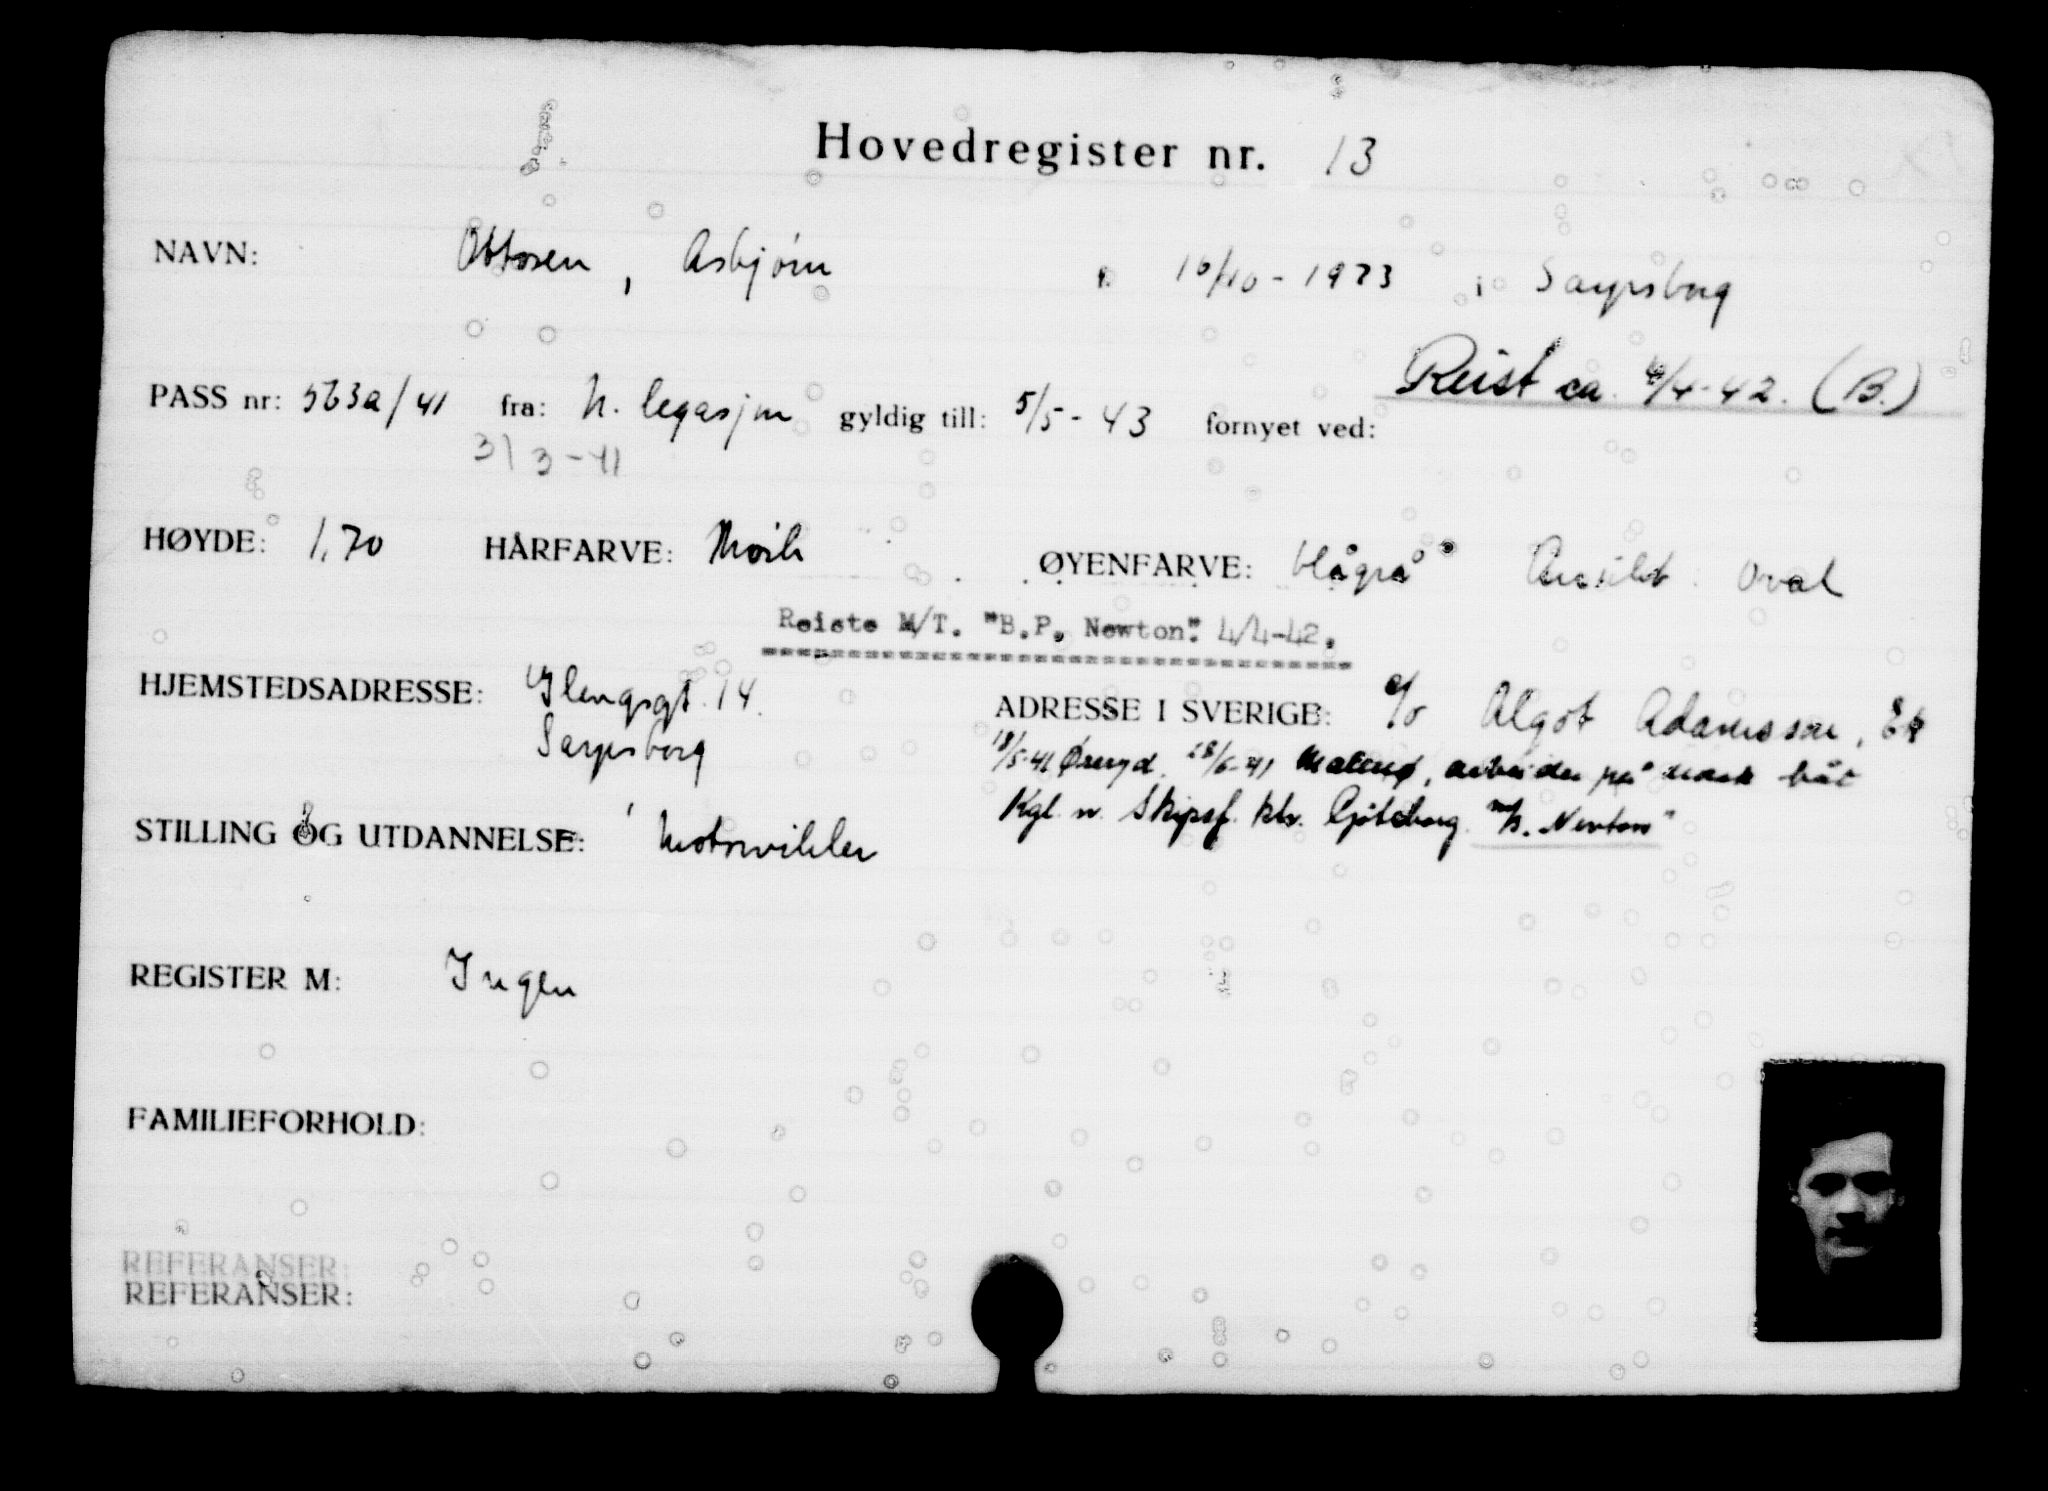 Hovedregister nr. 13
NAVN: Ottosen, Asbjørn f. 10/10-1923 i Sarpsborg
Reist ca. 4/4-42. (B.)
PASS nr: 563a/41 fra: N. legasjon gyldig till: 5/5-43 fornyet ved:
31/3-41
HØYDE: 1.70 HÅRFARVE: Mørk ØYENFARVE: blågrå Ansikt oval
Reiste M/T. "B.P. Newton". 4/4-42.
HJEMSTEDSADRESSE: Glengsgt. 14. ADRESSE I SVERIGE: c/o Algot Adamsson, Ek
Sarpsborg 18/5-41 Øreryd. 28/6-41 Malmø, arbeider på norsk båt
Kgl. n. Skipsf. ktr. Gøteborg. Newton"
STILLING OG UTDANNELSE: Motorvikler
REGISTER M: Ingen
FAMILIEFORHOLD:
REFERANSER:
REFERANSER: